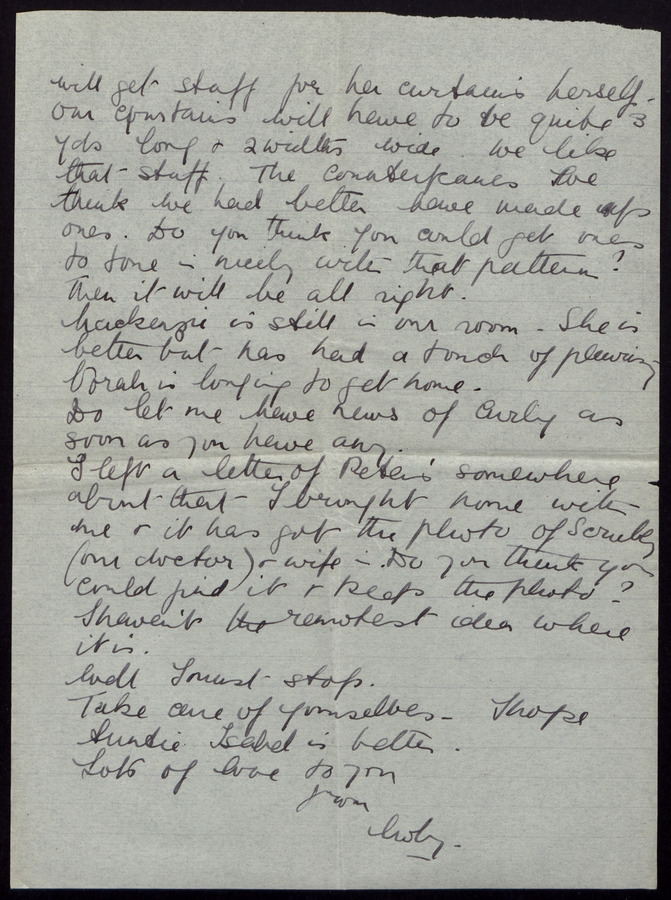 will get stuff for her curtains herself.
Our curtains will have to be quite 3
yds long & 2 widths wide. We like
that stuff. The counterpanes I've
think we had better have made up
ones. Do you think you could get ones
to tone in nicely with that pattern?
Then it will be all right.
Mackenzie is still in our room - She is
better but has had a touch of pleurisy
is longing to get home.
Do let me have news of Curly as
soon as you have any.
I left a letter of Peter's somewhere
about that I brought home with
me & it has got the photo of
(our doctor) & wife in. Do you think you
could find it & keep the photo?
I haven't the remotest idea where
it is.
Well I must stop.
Take care of yourselves - I hope
Auntie Isabel is better.
Lots of love to you
from